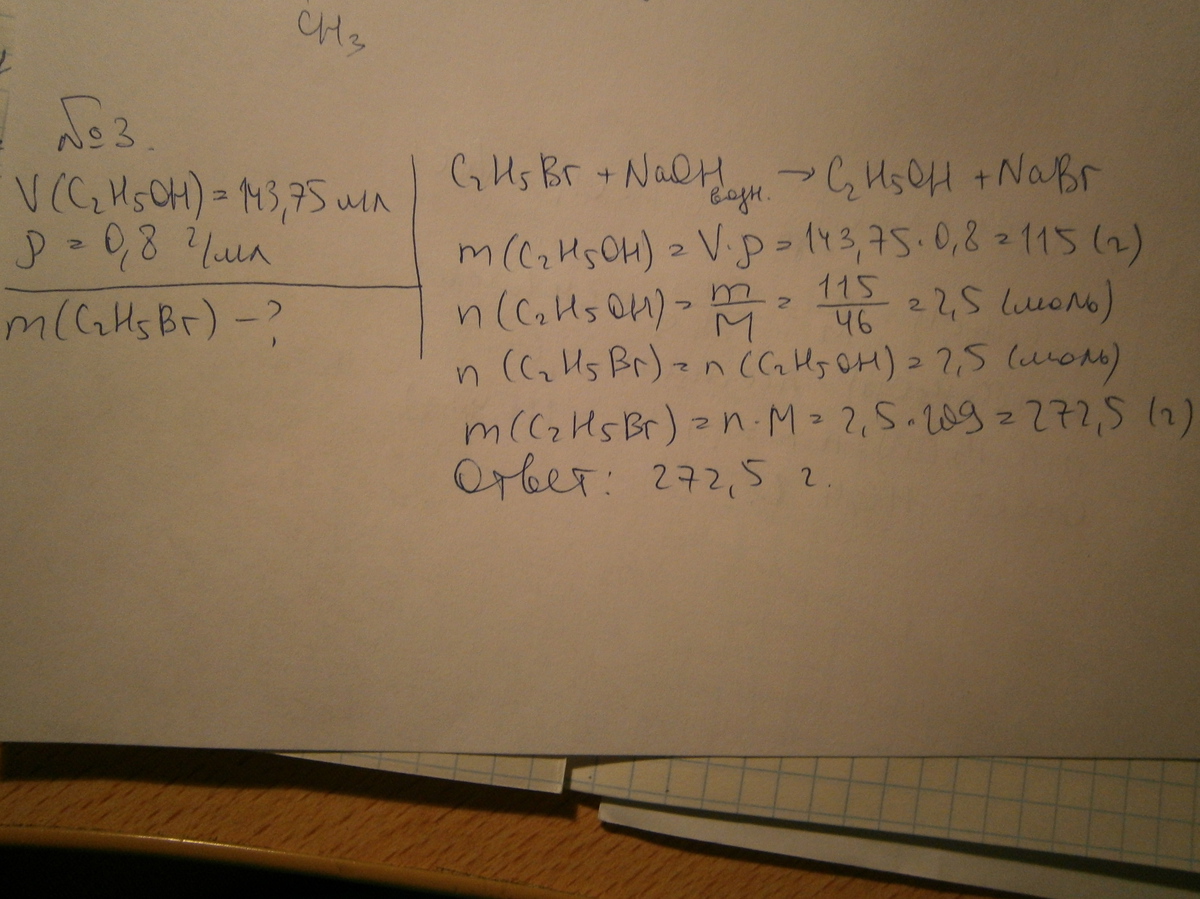 CH₃
№3.
V(C₂H₅OH) = 143,75 мл
ρ = 0,8 г/мл
m(C₂H₅Br) – ?
C₂H₅Br + NaOH водн. → C₂H₅OH + NaBr
m(C₂H₅OH) = V·ρ = 143,75·0,8 = 115 (г)
n(C₂H₅OH) = m/M = 115/46 = 2,5 (моль)
n (C₂H₅Br) = n(C₂H₅OH) = 2,5 (моль)
m(C₂H₅Br) = n·M = 2,5·109 = 272,5 (г)
Ответ: 272,5 г.